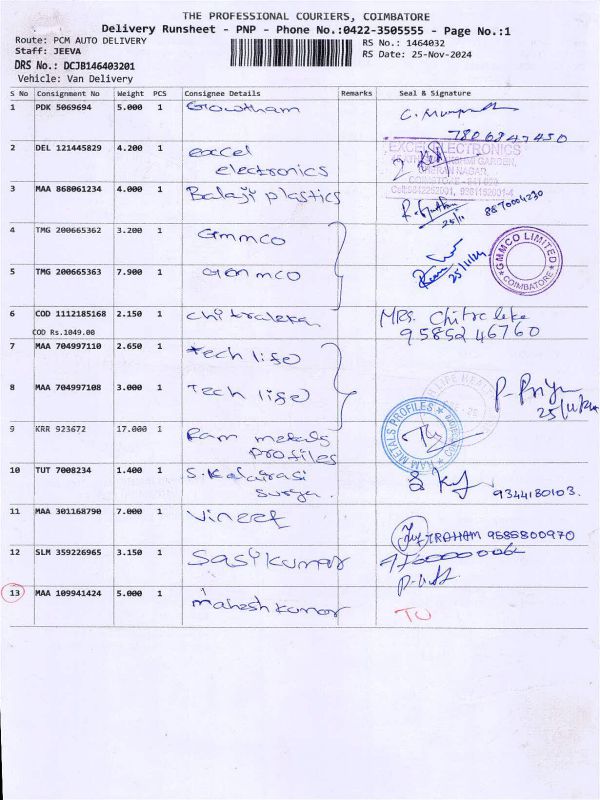 THE PROFESSIONAL COURIERS, COIMBATORE
Delivery Runsheet - PNP - Phone No.:0422-3505555 - Page No.:1
Route: PCM AUTO DELIVERY
RS No.: 1464032
Staff: JEEVA
RS Date: 25-Nov-2024
DRS No.: DCJB146403201
Vehicle: Van Delivery
S No Consignment No Weight PCS Consignee Details Remarks Seal & Signature
1 PDK 5069694 5.000 1 Gowtham
7806947450
2 DEL 121445829 4.200 1 excel electronics
EXCEL ELECTRONICS
3 MAA 868061234 4.000 1 Balaji plastics
25/11 8870004230
4 TMG 200665362 3.200 1 Gmmco
25/11/24
GMMCO LIMITED COIMBATORE
5 TMG 200665363 7.900 1 Gmmco
6 COD 1112185168 2.150 1 chitraleka MRS. Chitraleke
COD Rs.1049.00 9585246760
7 MAA 704997110 2.650 1 Tech life
8 MAA 704997108 3.000 1 Tech life P. Priya
25/11/24
9 KRR 923672 17.000 1 Ram metals profiles
RAM METALS PROFILES
10 TUT 7008234 1.400 1 S. Kalairasi
surya.
9344180103.
11 MAA 301168790 7.000 1 vineet
9585800970
12 SLM 359226965 3.150 1 Sasikumar
13 MAA 109941424 5.000 1 mahesh kumar